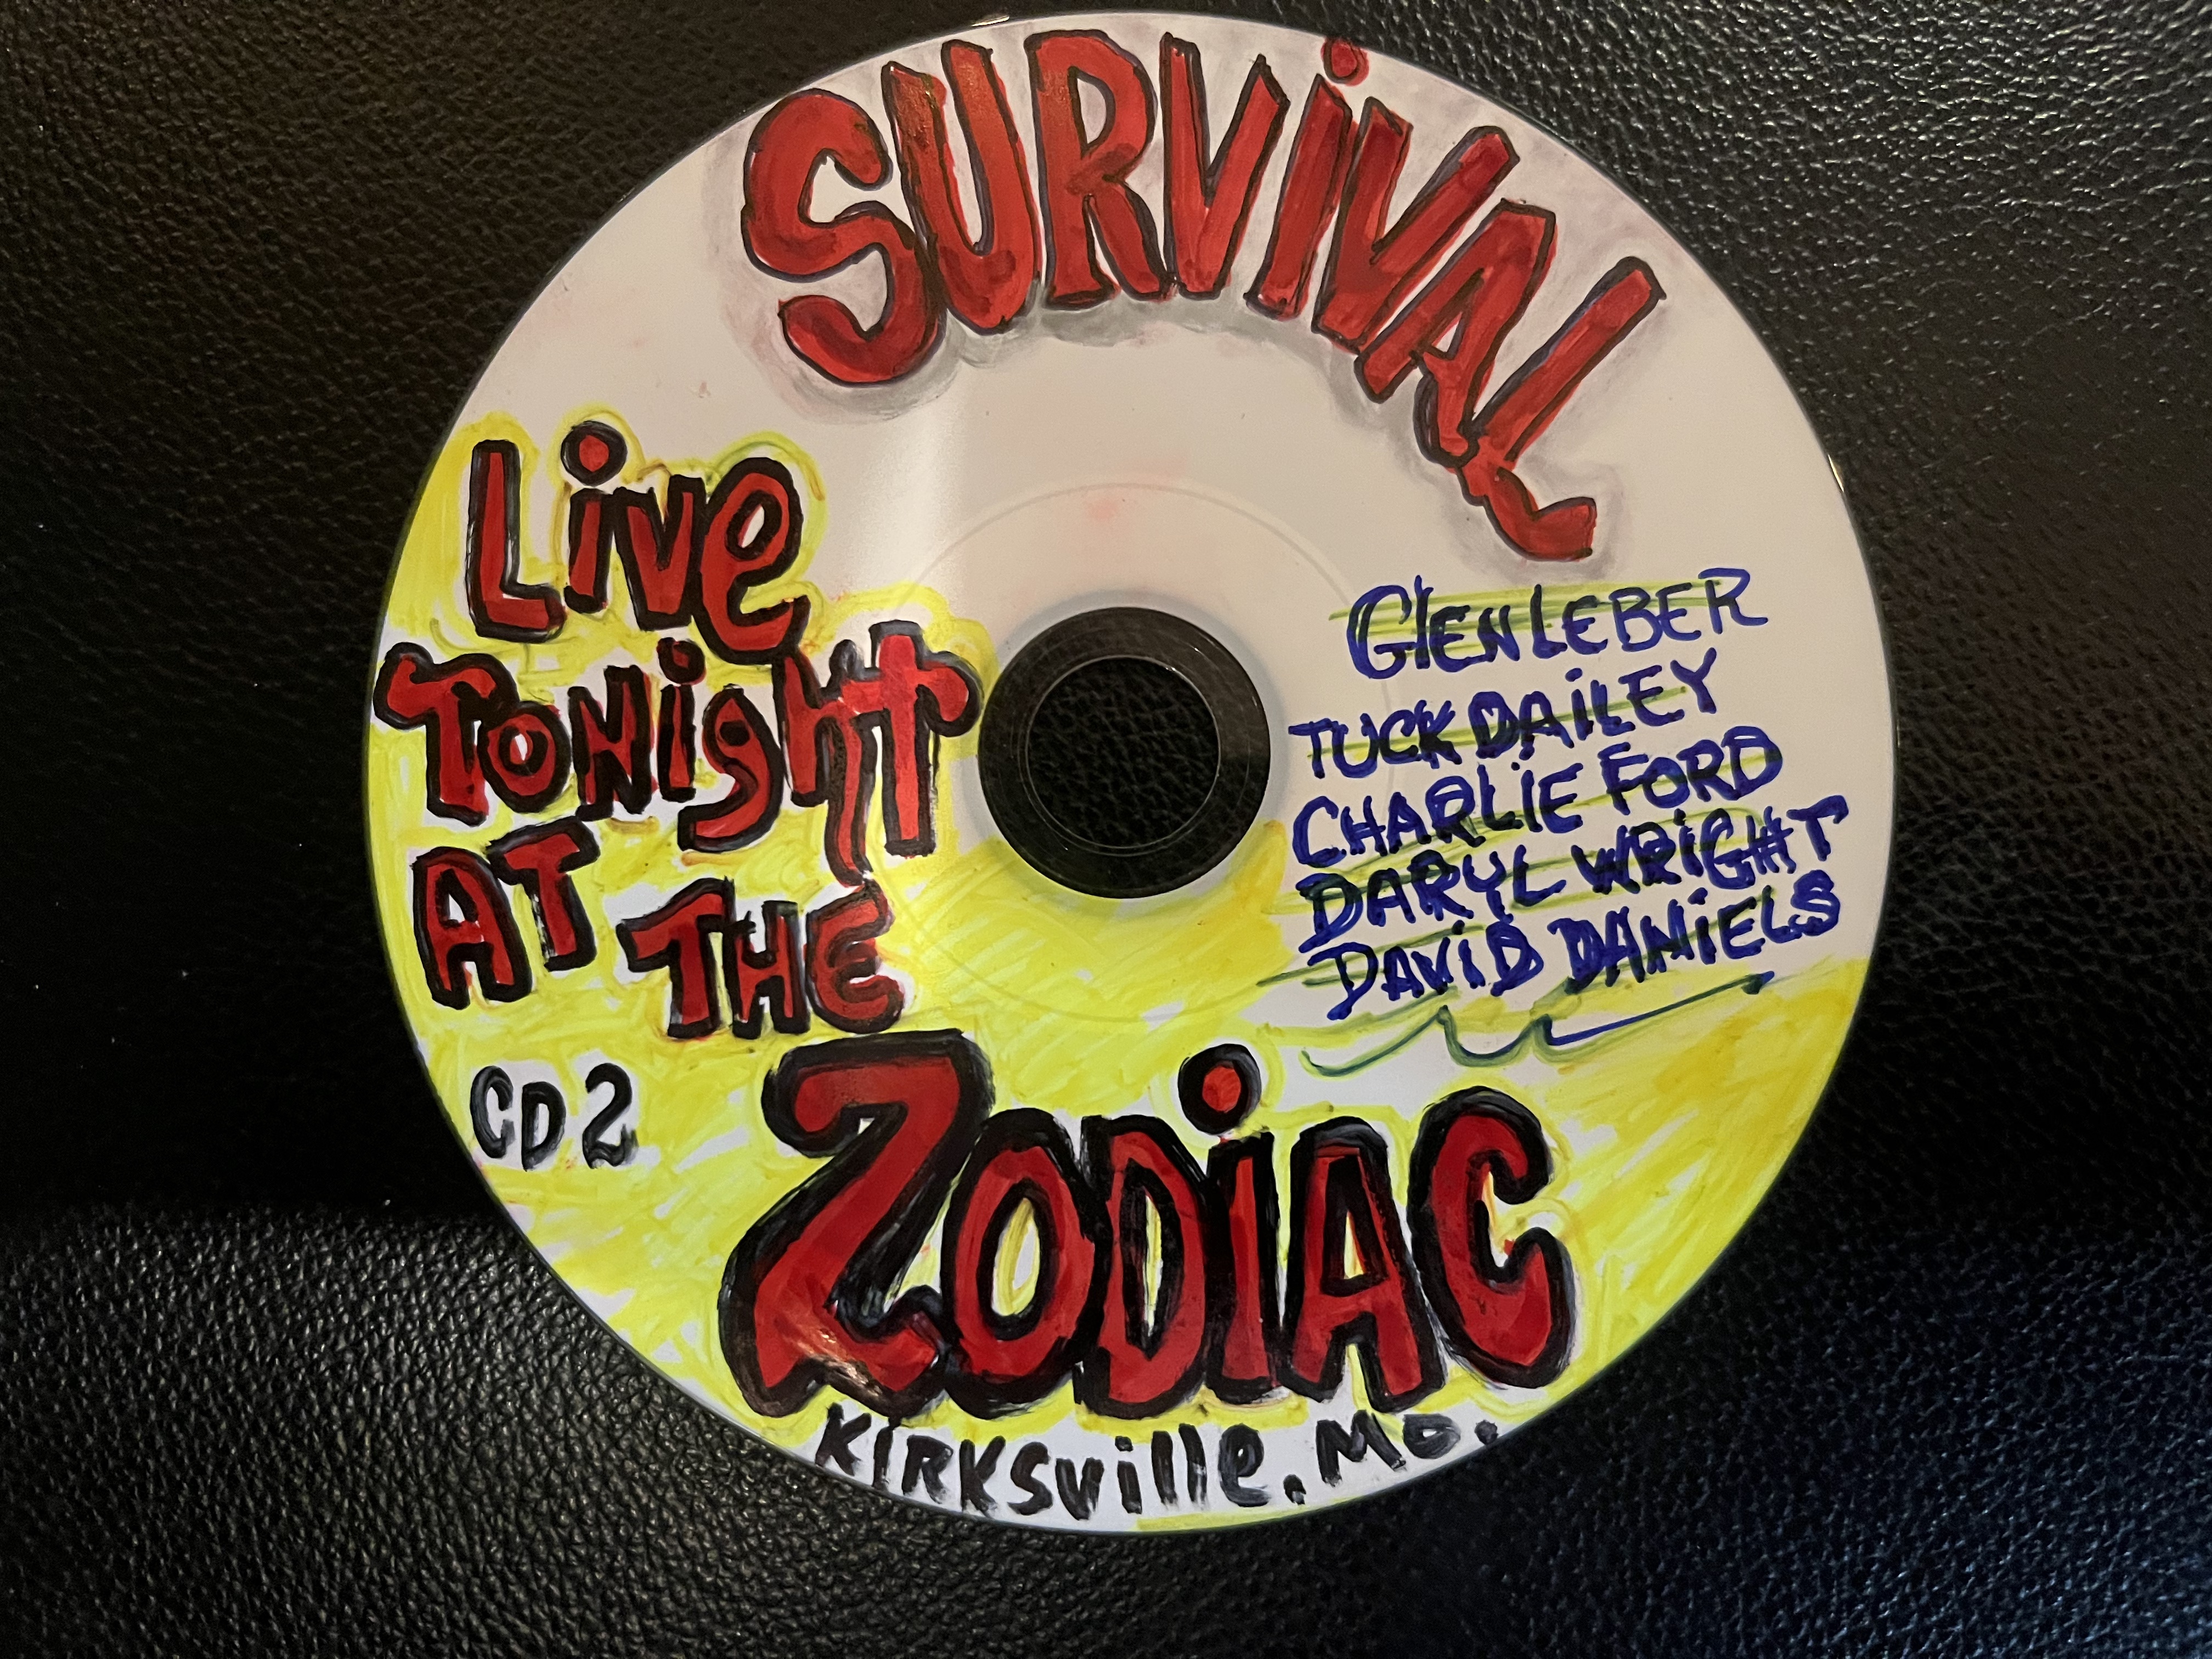 SURViVAL
Live
ToNight
AT THE
ZODiAC
CD 2
KIRKSville, Mo.
GlEN LEBER
TUCK DAiLEY
CHARLiE FORD
DARYL WRiGHT
DAViD DANiELS